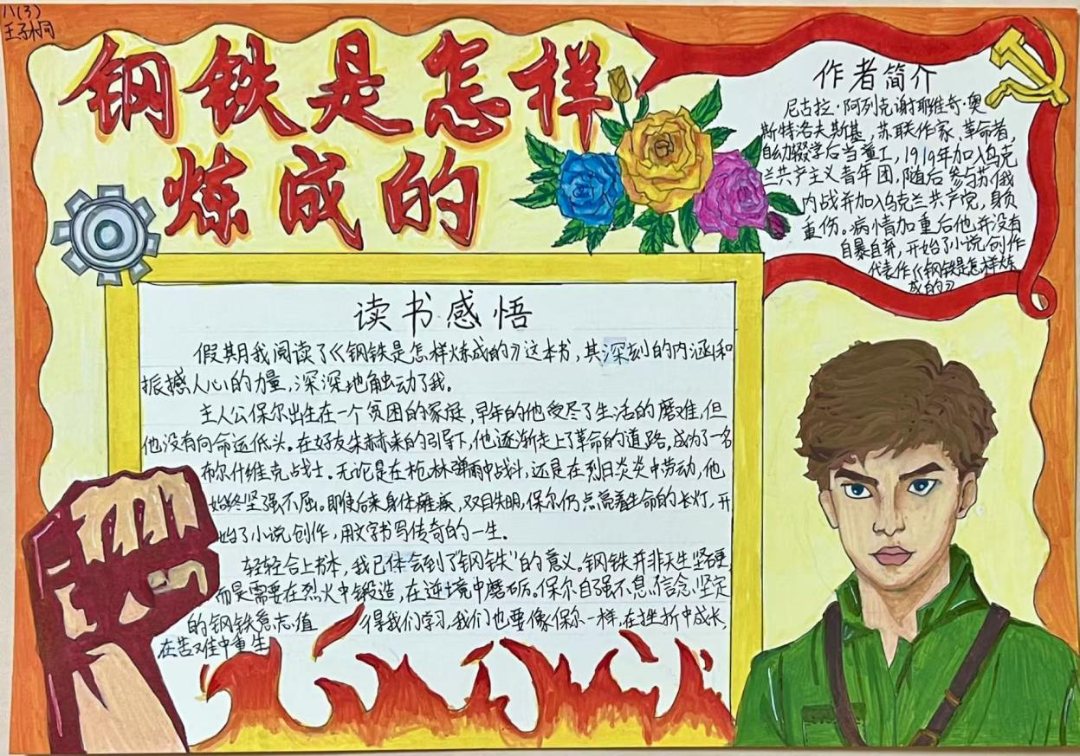 八(3)
王子桐
钢铁是怎样
炼成的
作者简介
尼古拉·阿列克谢耶维奇·奥
斯特洛夫斯基，苏联作家、革命者，
自幼辍学后当童工，1919年加入乌克
兰共产主义青年团，随后参与苏俄
内战并加入乌克兰共产党，身负
重伤。病情加重后他并没有
自暴自弃，开始了小说创作
代表作《钢铁是怎样炼
成的》
读书感悟
假期我阅读了《钢铁是怎样炼成的》这本书，其深刻的内涵和
振撼人心的力量，深深地触动了我。
主人公保尔出生在一个贫困的家庭，早年的他受尽了生活的磨难，但
他没有向命运低头。在好友朱赫来的引导下，他逐渐走上了革命的道路，成为了一名
布尔什维克战士。无论是在枪林弹雨中战斗，还是在烈日炎炎中劳动，他
始终坚强不屈。即使后来身体瘫痪，双目失明，保尔仍点亮着生命的长灯，开
始了小说创作，用文字书写传奇的一生。
轻轻合上书本，我已体会到了"钢铁"的意义。钢铁并非天生坚硬，
而是需要在烈火中锻造，在逆境中磨砺。保尔自强不息、信念坚定
的钢铁意志，值得我们学习，我们也要像保尔一样，在挫折中成长，
在苦难中重生